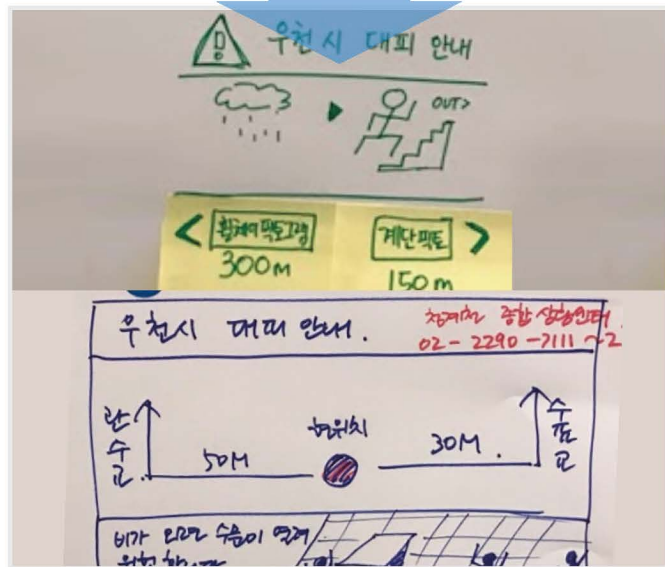 우천시 대피 안내
OUT>
< 휠체어픽토그램
300M
계단픽토 >
150m
우천시 대피 안내.
청계천 종합상황센터
02-2290-7111~2
관수교
50M
현위치
30M.
수표교
비가 오면 수문이 열려
위험합니다